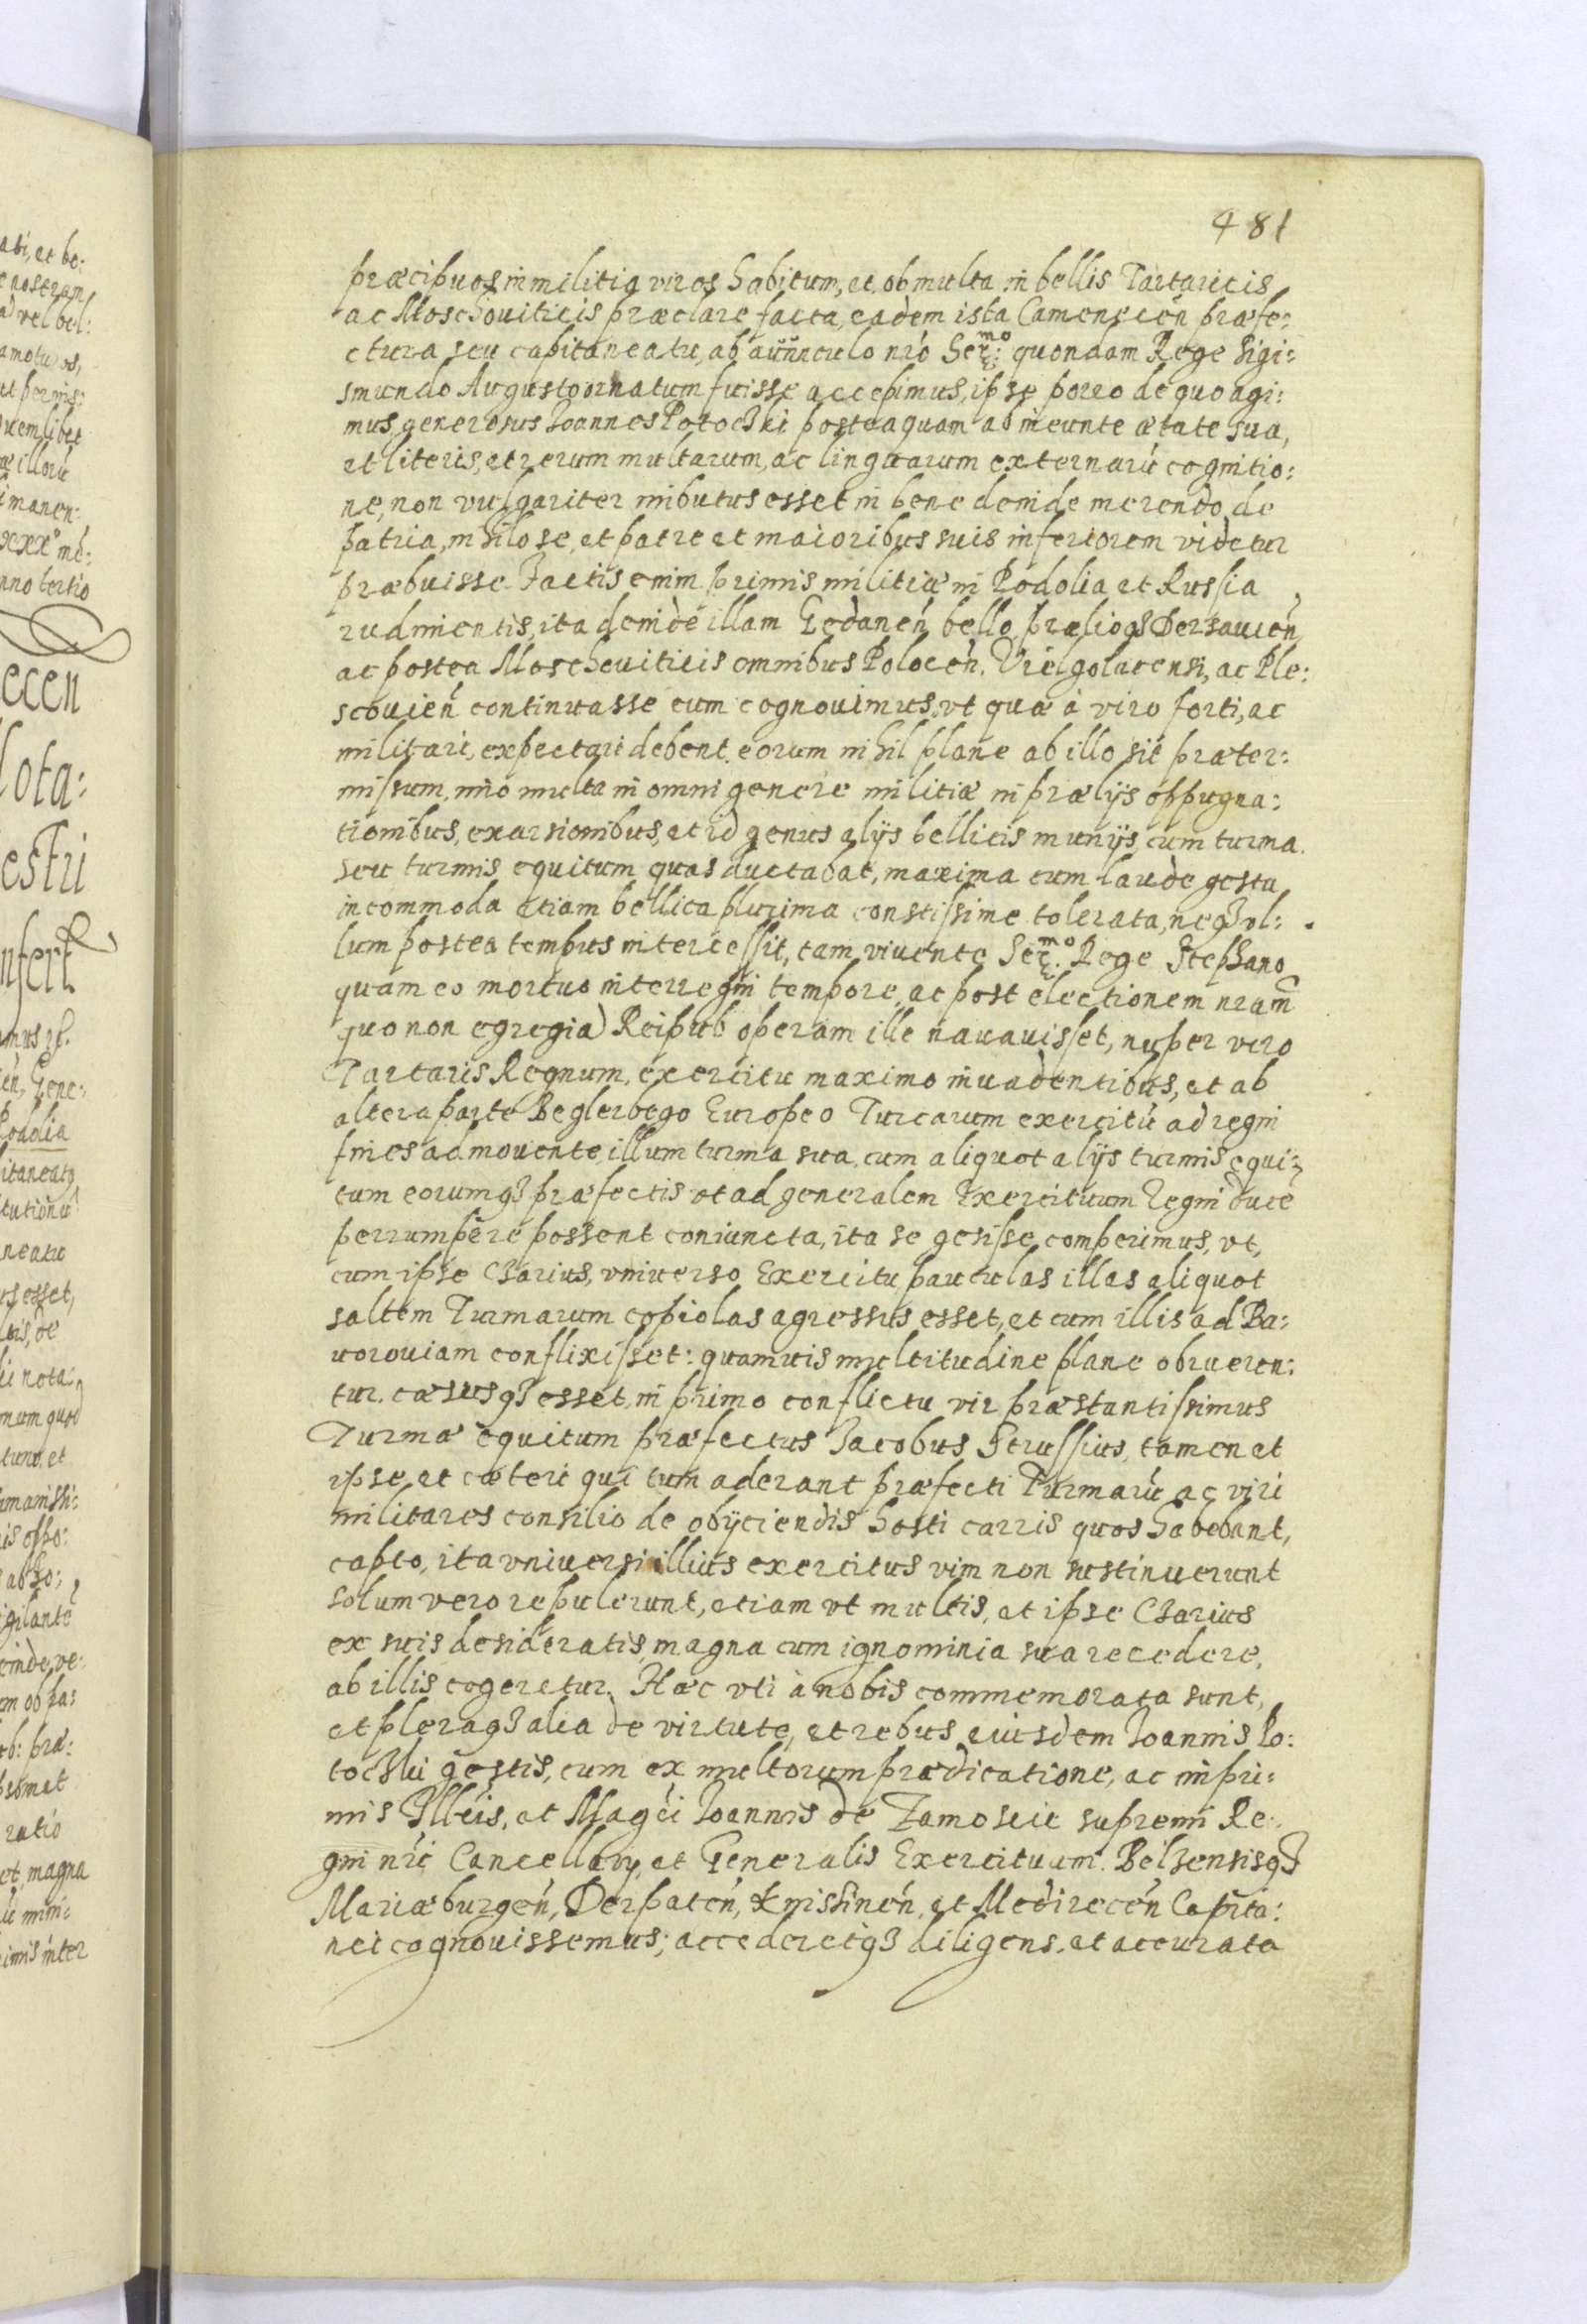 481
præcipuos in militia viros habitum, et ob multa in bellis Tartaricis
ac Moschouiticis præclare facta, eadem ista Camenecen̄ præfe:
ctura seu capitaneatu, ab auunculo nr̄o Ser:mo quondam Rege Sigi:
smundo Augusto ornatum fuisse accepimus, ipse porro de quo agi:
mus, generosus Ioannes Potoczki posteaquam ab ineunte ætate sua,
et literis, et rerum multarum, ac linguarum externarū cognitio:
ne, non vulgariter imbutus esset in bene deinde merendo de
patria, nihilo se, et patre et maioribus suis inferiorem videtur
præbuisse. Factis enim primis militiæ in Podolia et Russia
rudimentis, ita deinde illam Gedanen̄ bello, prælioqȝ Dersauien̄
ac postea Moscheuiticis omnibus Polocen̄. Vielgolucensi, ac Ple:
scouien̄ continuasse eum cognouimus, vt quæ à viro forti, ac
militari, expectari debent, eorum nihil plane ab illo sit præter:
missum, imo multa in omni genere militiæ in prælijs oppugna:
tionibus, excursionibus, et id genus alijs bellicis munijs, cum turma
seu turmis equitum quas ductabat, maxima cum laude gesta
incommoda etiam bellica plurima constissime tolerata, neqȝ vl:
lum postea tempus intercessit, tam viuente Ser:mo Rege Stephano
quam eo mortuo interregni tempore, ac post electionem nram̄
quo non egregia) Reipub operam ille nauauisset, nuper vero
Tartaris Regnum, exercitu maximo inuadentibus, et ab
altera parte Beglerbego Europeo Turcarum exercitū ad regni
fines admouente, illum turma sua, cum aliquot alijs turmis equi:
tum eorumqȝ præfectis vt ad generalem Exercituum Regni ducē
perrumpere possent coniuncta, ita se gesisse comperimus, vt,
cum ipse Charius, vniuerso Exercitu pauculas illas aliquot
saltem Turmarum copiolas agressus esset, et cum illis ad Ba:
uorouiam conflixisset: quamuis multitudine plane obrueren:
tur. cæsusqȝ esset, in primo conflictu vir præstantissimus
Turmæ equitum præfectus Jacobus Strussius, tamen et
ipse, et cæteri qui tum aderant præfecti Turmarū ac viri
militares consilio de obijciendis hosti carris quos habebant,
capto, ita vniuersi illius exercitus vim non sustinuerunt
solum vero repulerunt, etiam vt multis, et ipse Charius
ex suis desideratis, magna cum ignominia sua recedere,
ab illis cogeretur. Hæc vti à nobis commemorata sunt,
et pleraqȝ alia de virtute, et rebus eiusdem Ioannis Po:
toczki gestis, cum ex multorum prædicatione, ac inpri:
mis Illūis, et Magci Ioannis de Zamoscie supremi Re:
gni nr̄i Cancellarij, et Generalis Exercituum. Belzensisqȝ
Mariæburgen̄, Derpaten̄, Knisinen̄, et Medirecen̄ Capita:
nei cognouissemus; accederetqȝ diligens, et accurata